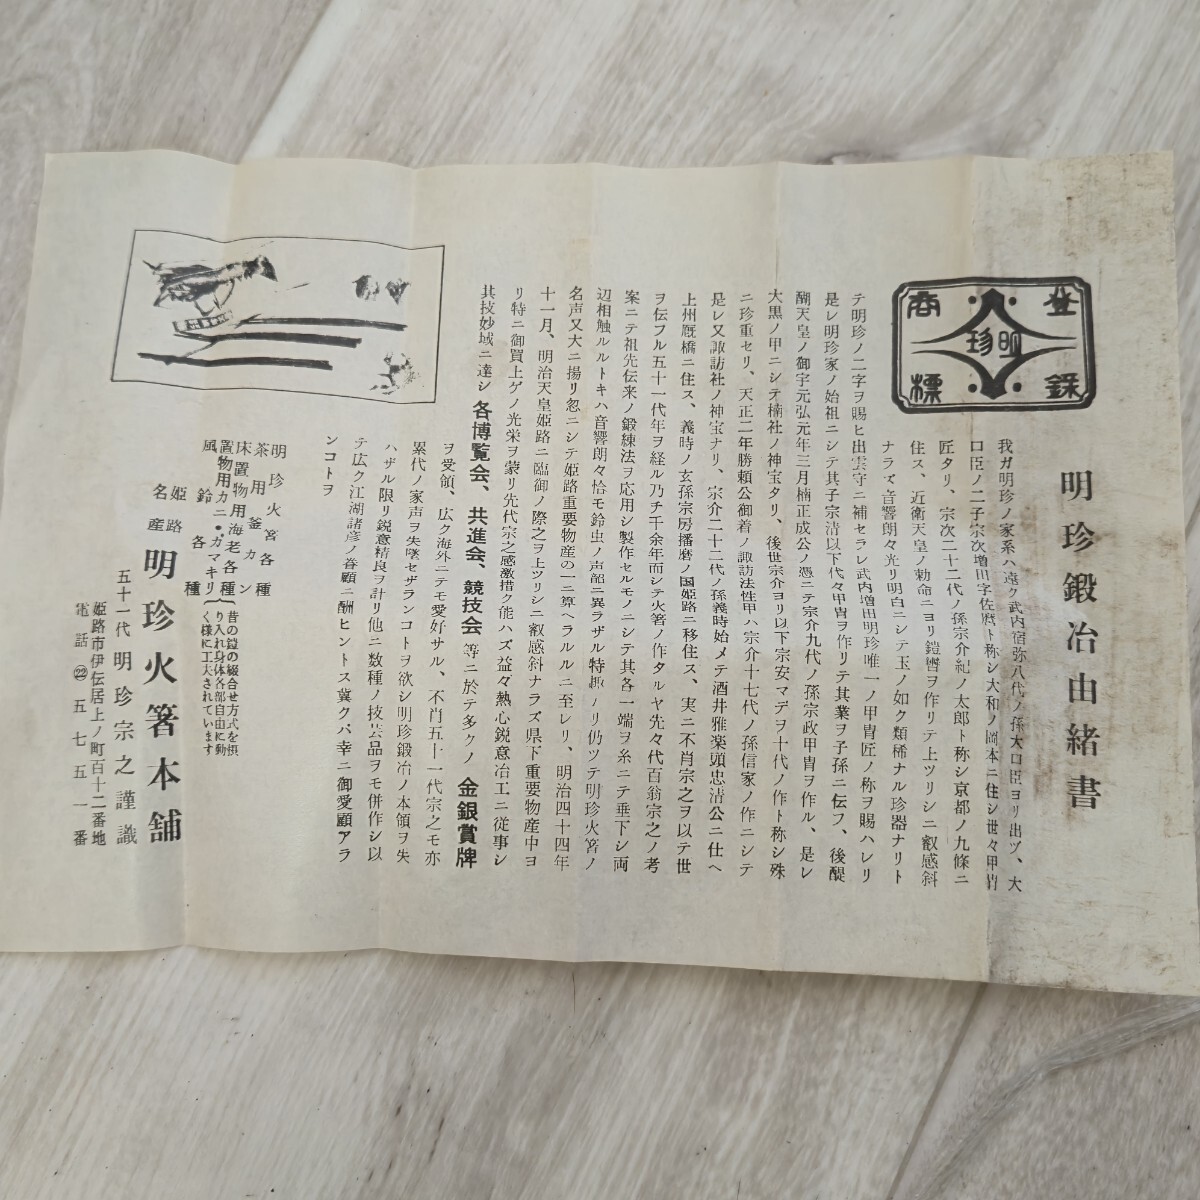 明珍鍛冶由緒書
登録
商標
明珍
我ガ明珍ノ家系ハ遠ク武内宿弥八代ノ孫大口臣ヨリ出ヅ、大
口臣ノ二子宗次増田字佐麿ト称シ大和ノ岡本ニ住シ世々甲冑
匠タリ、宗次二十二代ノ孫宗介紀ノ太郎ト称シ京都ノ九條ニ
住ス、近衛天皇ノ勅命ニヨリ鎧轡ヲ作リテ上ツリシニ叡感斜
ナラズ音響朗々光リ明白ニシテ玉ノ如ク類稀ナル珍器ナリト
テ明珍ノ二字ヲ賜ヒ出雲守ニ補セラレ武内増田明珍唯一ノ甲冑匠ノ称ヲ賜ハレリ
是レ明珍家ノ始祖ニシテ其子宗清以下代々甲冑ヲ作リテ其業ヲ子孫ニ伝フ、後醍
醐天皇ノ御宇元弘元年三月楠正成公ノ憑ニテ宗介九代ノ孫宗政甲冑ヲ作ル、是レ
大黒ノ甲ニシテ楠社ノ神宝タリ、後世宗介ヨリ以下宗安マデヲ十代ノ作ト称シ殊
ニ珍重セリ、天正二年勝頼公御着ノ諏訪法性甲ハ宗介十七代ノ孫信家ノ作ニシテ
是レ又諏訪社ノ神宝ナリ、宗介二十二代ノ孫義時始メテ酒井雅楽頭忠清公ニ仕ヘ
上州厩橋ニ住ス、義時ノ玄孫宗房播磨ノ国姫路ニ移住ス、実ニ不肖宗之ヲ以テ世
ヲ伝フル五十一代年ヲ経ル乃チ千余年而シテ火箸ノ作タルヤ先々代百翁宗之ノ考
案ニテ祖先伝来ノ鍛練法ヲ応用シ製作セルモノニシテ其各一端ヲ糸ニテ垂下シ両
辺相触ルルトキハ音響朗々恰モ鈴虫ノ声韶ニ異ラザル特趣ノリ仍ツテ明珍火箸ノ
名声又大ニ揚リ忽ニシテ姫路重要物産ノ一ニ算ヘラルルニ至レリ、明治四十四年
十一月、明治天皇姫路ニ臨御ノ際之ヲ上ツリシニ叡感斜ナラズ県下重要物産中ヨ
リ特ニ御買上ゲノ光栄ヲ蒙リ先代宗之感激措ク能ハズ益々熱心鋭意冶工ニ従事シ
其技妙域ニ達シ 各博覧会、共進会、競技会 等ニ於テ多クノ 金銀賞牌
ヲ受領、広ク海外ニテモ愛好サル、不肖五十一代宗之モ亦
累代ノ家声ヲ失墜セザランコトヲ欲シ明珍鍛冶ノ本領ヲ失
ハザル限リ鋭意精良ヲ計リ他ニ数種ノ技芸品ヲモ併作シ以
テ広ク江湖諸彦ノ眷顧ニ酬ヒントス冀クバ幸ニ御愛顧アラ
ンコトヲ
明珍火箸各種
茶用釜カン
床置物用海老各種
置物用カニ・カマキリ
昔の鎧の綴合せ方式を採
り入れ身体各部自由に動
く様に工夫されています
風鈴各種
姫路名産
明珍火箸本舗
五十一代明珍宗之謹識
姫路市伊伝居上ノ町百十二番地
電話㉒五七五一番